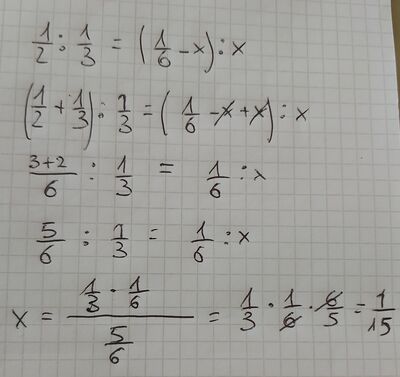 1/2 : 1/3 = (1/6 - x) : x
(1/2 + 1/3) : 1/3 = (1/6 - x + x) : x
3+2/6 : 1/3 = 1/6 : x
5/6 : 1/3 = 1/6 : x
x = (1/3 · 1/6)/(5/6) = 1/3 · 1/6 · 6/5 = 1/15